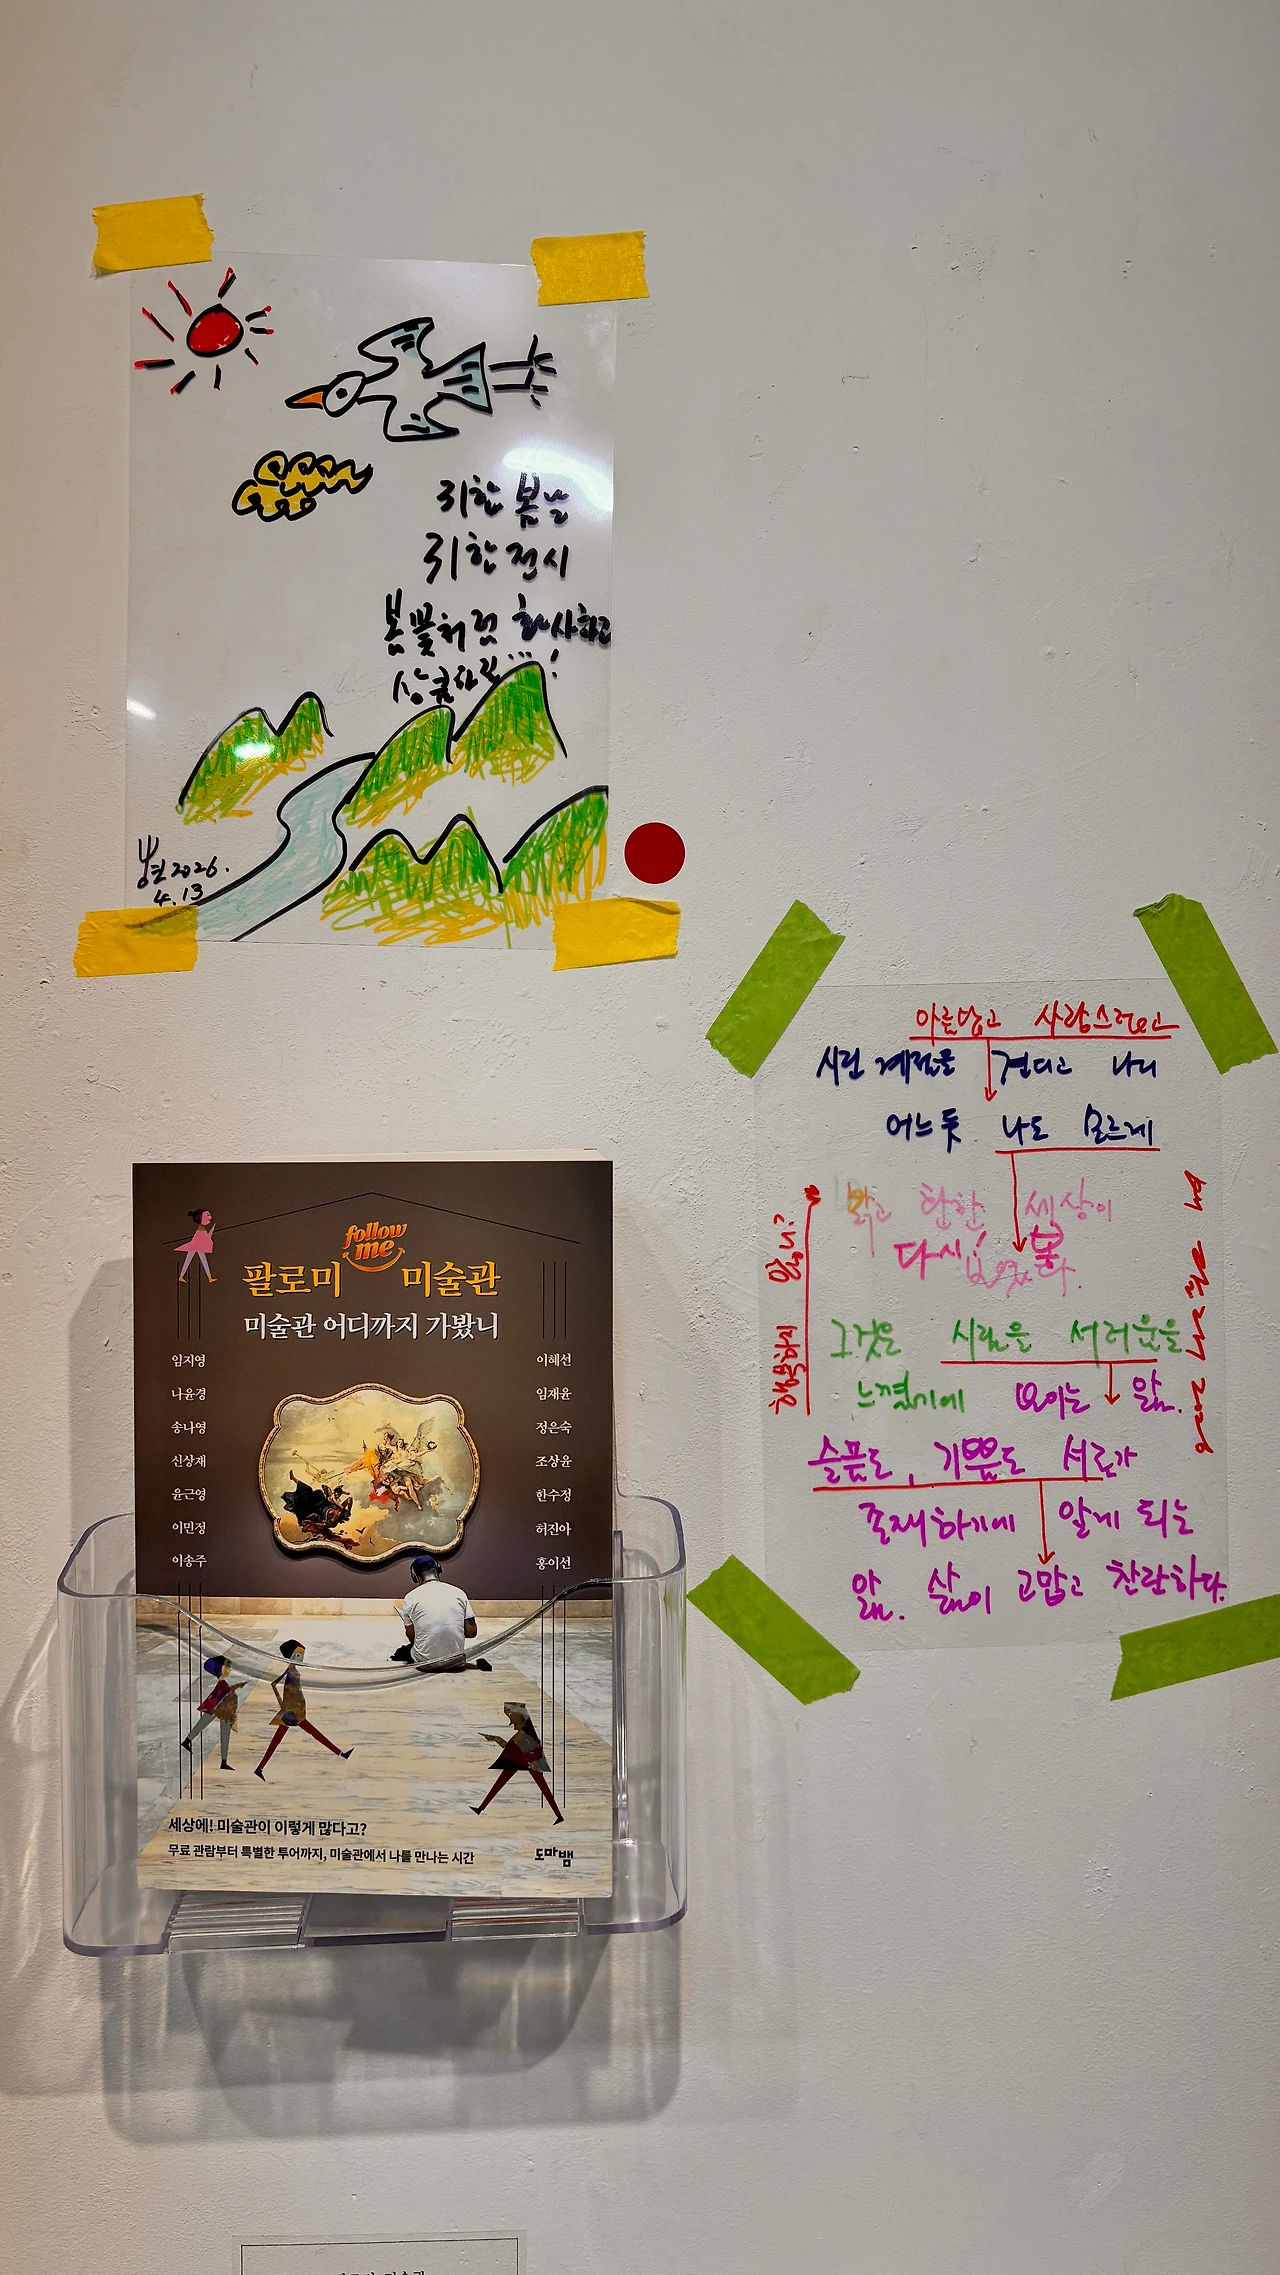 귀한 봄날
귀한 전시
봄꽃처럼 화사하고
상큼하고...!
2026.
4.13
아름답고 사랑스러운고
시린 계절을 견디고 나니
어느듯 나도 모르게
맑고 환한 세상이
다시! 봄
보였다.
그것은 시림을 서러움을
느꼈기에 보이는 앎.
슬픔도, 기쁨도 서로가
존재하기에 알게 되는
앎. 삶이 고맙고 찬란하다.
행복하지 않니?
2026
follow me
팔로미 미술관
미술관 어디까지 가봤니
임지영
나윤경
송나영
신상재
윤근영
이민정
이송주
이혜선
임재윤
정은숙
조상윤
한수정
허진아
홍이선
세상에! 미술관이 이렇게 많다고?
무료 관람부터 특별한 투어까지, 미술관에서 나를 만나는 시간
도마뱀